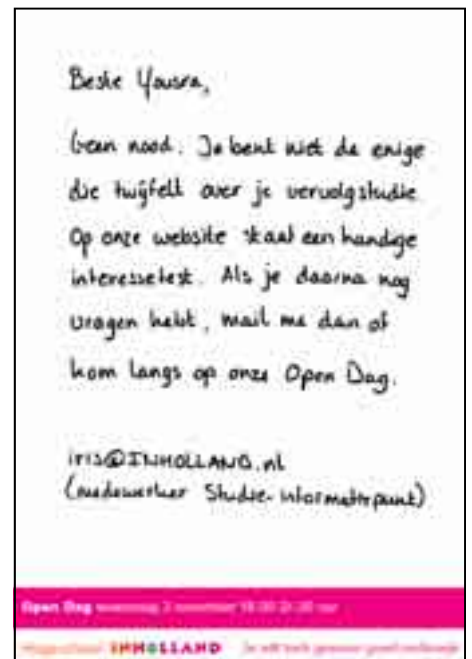 Beste Yousra,
Geen nood. Je bent niet de enige
die twijfelt over je vervolgstudie.
Op onze website staat een handige
interessetest. Als je daarna nog
vragen hebt, mail me dan of
kom langs op onze Open Dag.
iris@INHOLLAND.nl
(medewerker Studie-informatiepunt)
Open Dag woensdag 2 november
Hogeschool INHOLLAND Je wilt toch gewoon goed onderwijs